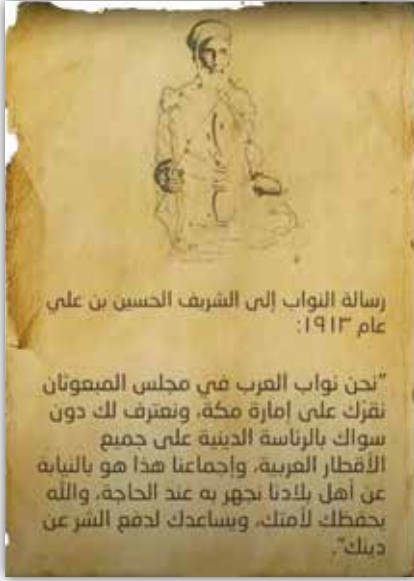 رسالة النواب إلى الشريف الحسين بن علي
عام ١٩١٣:
"نحن نواب العرب في مجلس المبعوثان
نقرّك على إمارة مكة، ونعترف لك دون
سواك بالرئاسة الدينية على جميع
الأقطار العربية، وإجماعنا هذا هو بالنيابة
عن أهل بلادنا نجهر به عند الحاجة، والله
يحفظك لأمتك، ويساعدك لدفع الشر عن
دينك".